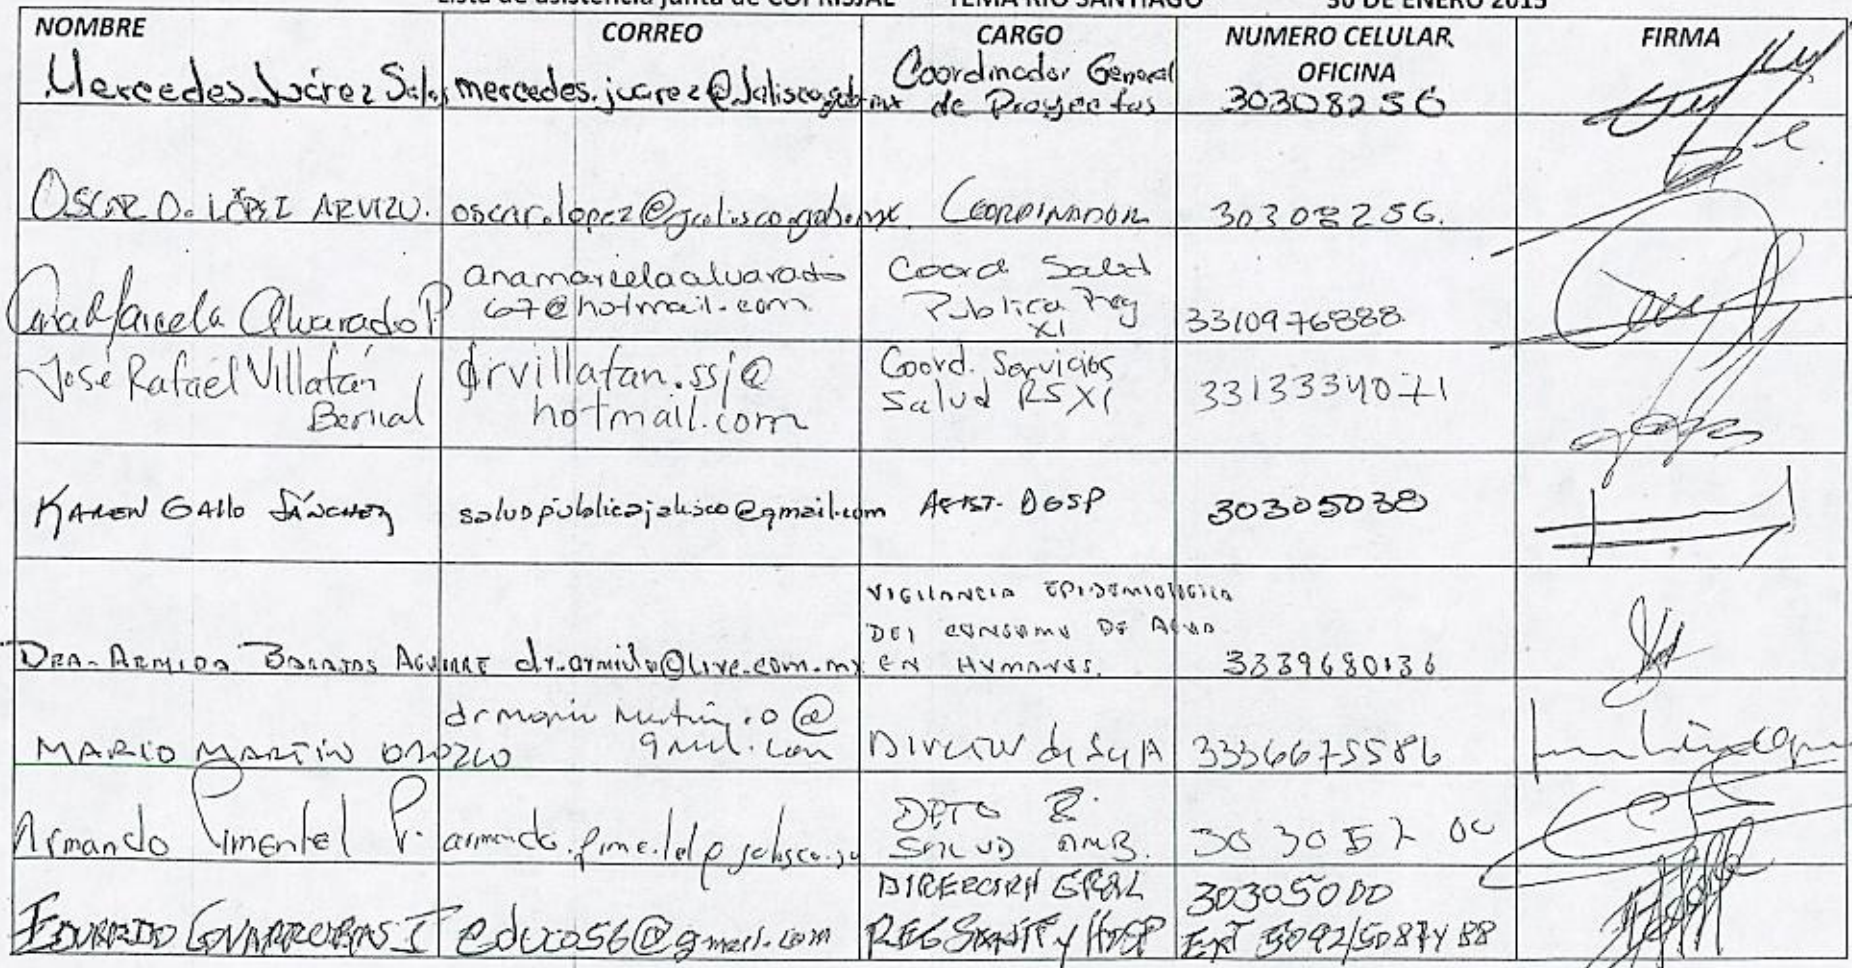 Lista de asistencia junta de COPRISJAL TEMA RIO SANTIAGO 30 DE ENERO 2015
NOMBRE CORREO CARGO NUMERO CELULAR, OFICINA FIRMA
Mercedes Juárez mercedes.juarez@jalisco.gob.mx Coordinador General
de Proyectos 30308256
OSCAR D. LÓPEZ ARVIZU. oscar.lopez@jalisco.gob.mx COORDINADOR 30308256.
Ana Marcela Alvarado P. anamarcelaalvarado
67@hotmail.com
Coord Salud
Publica Reg
XI
3310976888
José Rafael Villafán
Bernal
drvillafan.ssj@
hotmail.com
Coord. Servicios
Salud RSXI
3313334071
KAREN GALLO SÁNCHEZ saludpublicajalisco@gmail.com ASIST. DGSP 30305030
DRA. ARMIDA BARAJAS AGUIRRE dr.armida@live.com.mx
VIGILANCIA EPIDEMIOLOGICA
DEL CONSUMO DE AGUA
EN HUMANOS.
3339680136
MARIO MARTÍN OROZCO
3336675586
Armando Pimentel P.
DPTO
SALUD AMB.
30305700
EDUARDO COVARRUBIAS I educo56@gmail.com
DIRECCION GRAL
30305000
EXT 5092/5087 Y 88